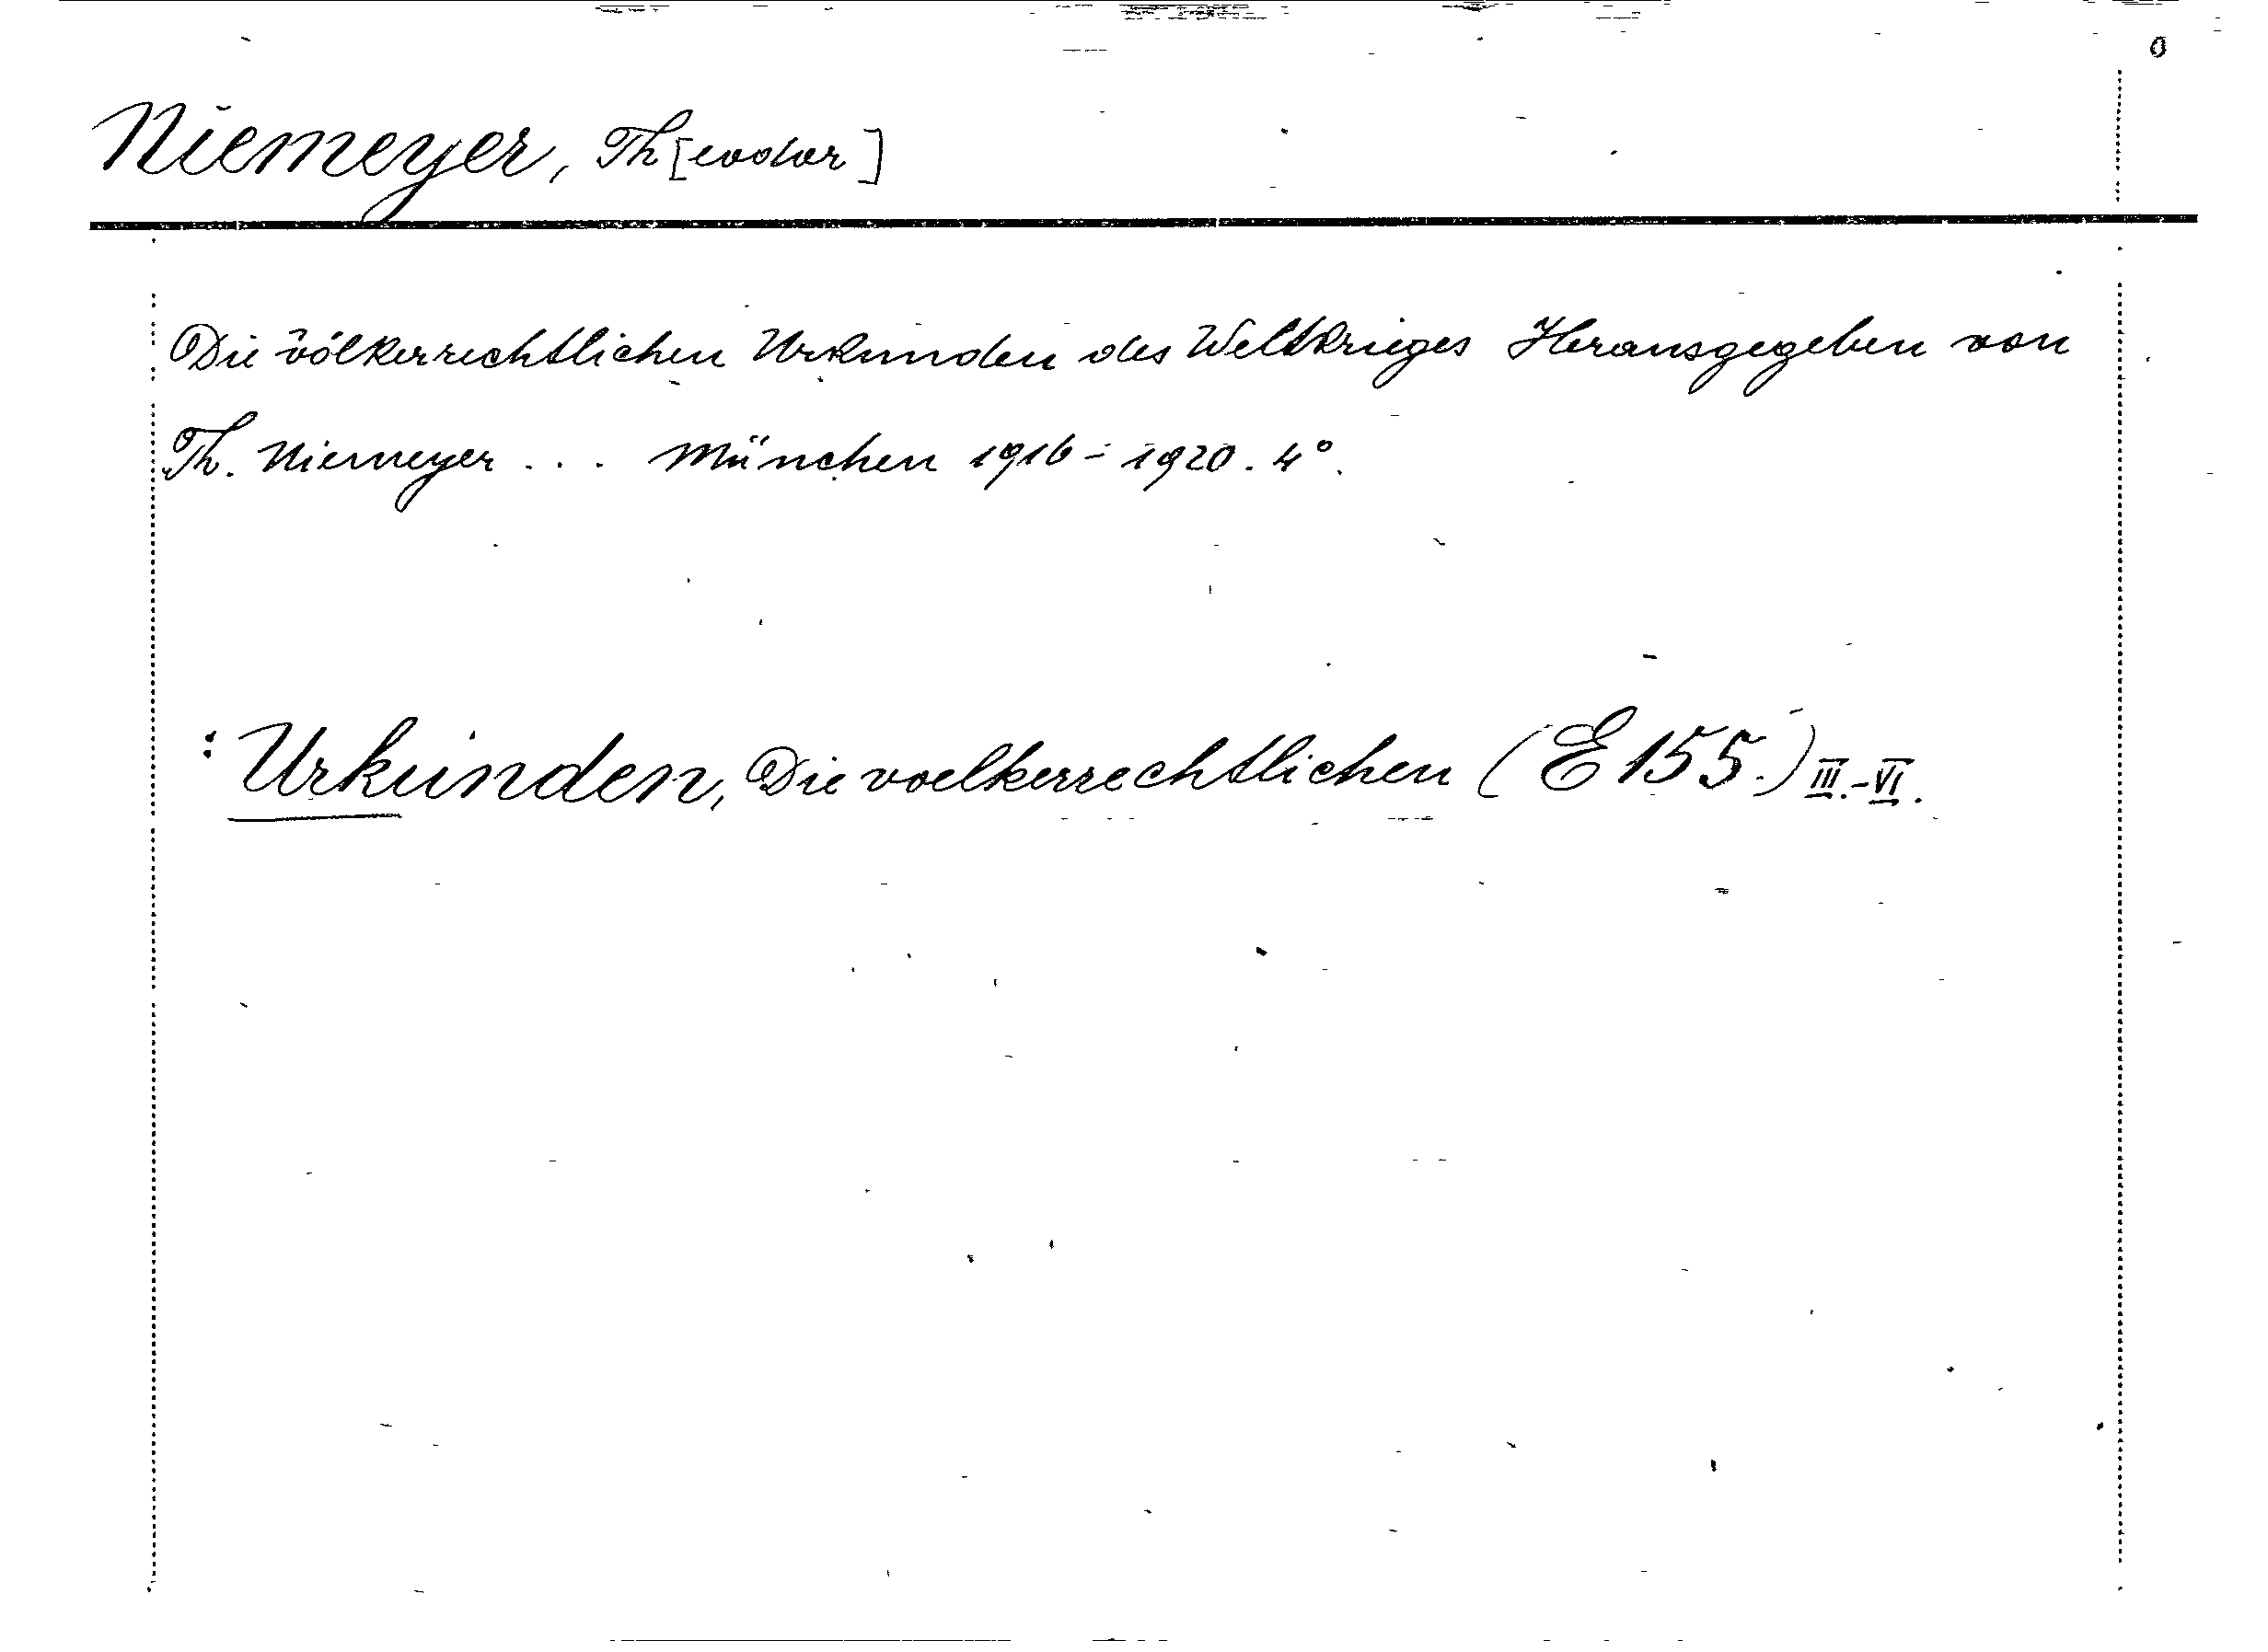 Niemeyer, Th[eodor]
Die völkerrechtlichen Urkunden des Weltkrieges Herausgegeben von
Th. Niemeyer ... München 1916-1920. 4°.
: Urkunden, Die voelkerrechtlichen (E 155.) III.-VI.